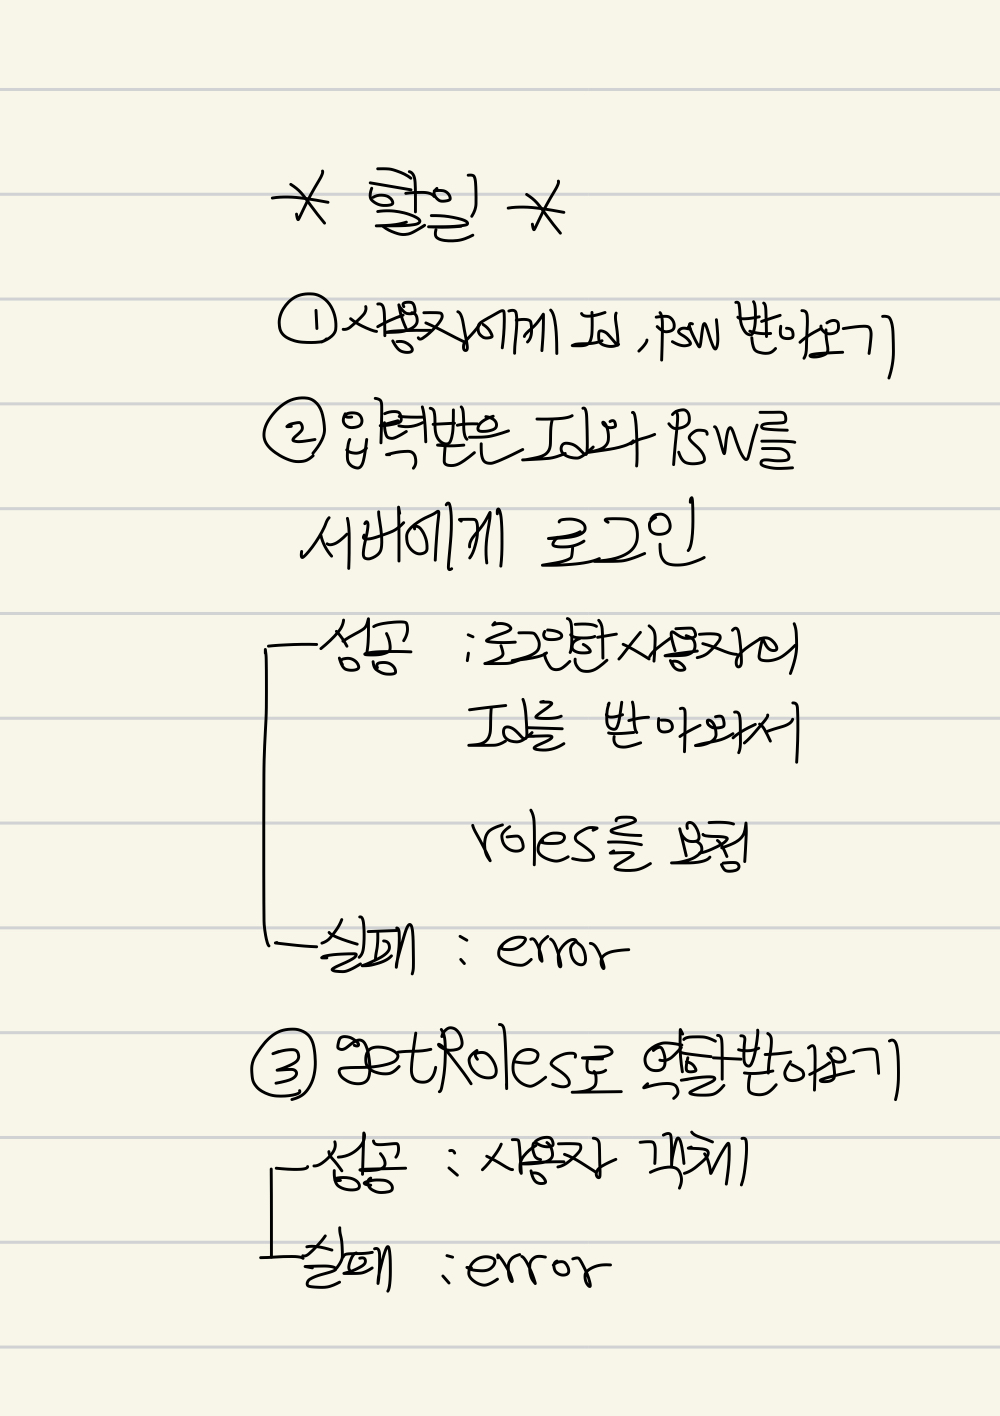 * 할일 *
① 사용자에게 Id, PSW 받아오기
② 입력받은 Id와 PSW를
서버에게 로그인
성공 : 로그인한 사용자의
Id를 받아와서
roles를 요청
실패 : error
③ getRoles로 역할받아오기
성공 : 사용자 객체
실패 : error